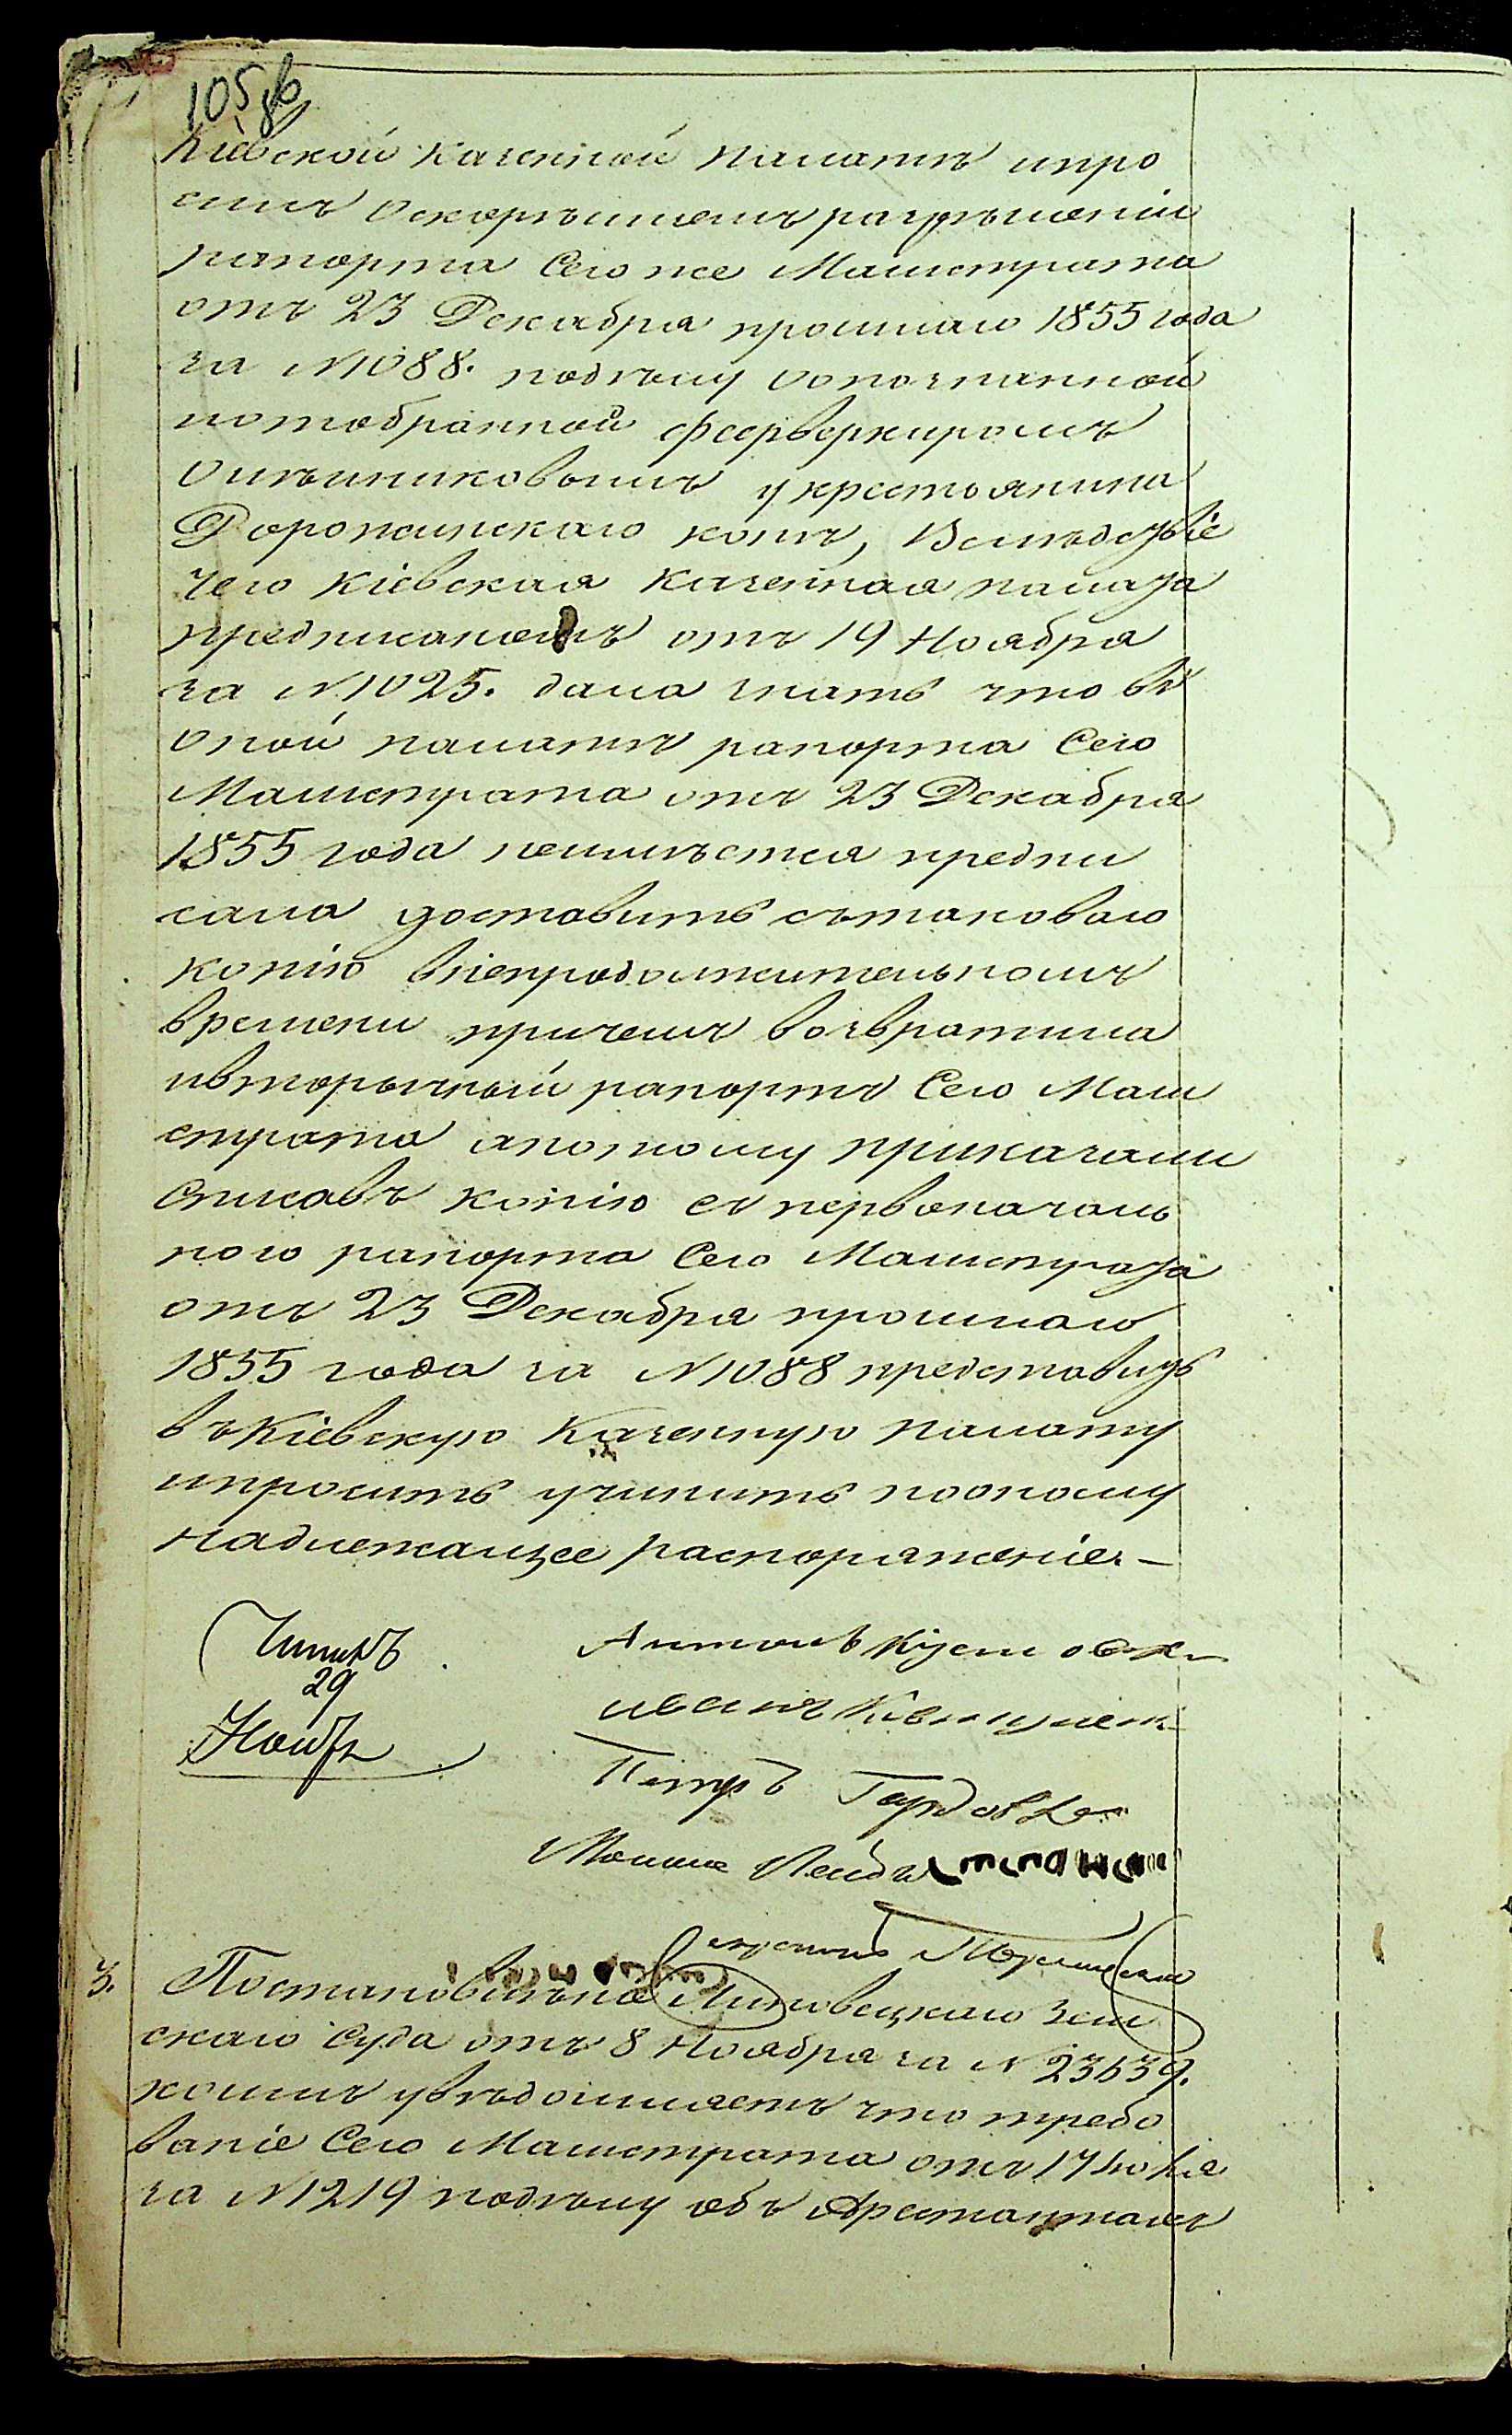 105 об
Кіевской казенной палатѣ и про
ситъ о скорѣйшемъ разрѣшеніи
рапорта Сего же Магистрата
отъ 23 Декабря прошлаго 1855 года
за N 1088. по дѣлу о опознанной
и отобранной фейерверкиромъ
у крестьянина
Дорожинскаго кони, Вслѣдствіе
чего Кіевская Казенная палата
предписаніемъ отъ 19 Ноября
за N 1025. дала знать что въ
оной палатѣ рапорта Сего
Магистрата отъ 23 Декабря
1855 года неимѣется предпи
сала доставить съ таковаго
копію в непродолжительномъ
времени причемъ возвратила
и вторичный рапортъ Сего Маги
страта а потому приказали
Списавъ копію съ первоначаль
ного рапорта Сего Магистрата
отъ 23 Декабря прошлаго
1855 года за N 1088 представить
въ Кіевскую Казенную палату
и просить учинить по оному
надлежащее распоряженіе. —
29
Ноябр
Иванъ
Петръ
3. Липовецкаго Зем
скаго Суда отъ 8 Ноября за N 23639.
коимъ увѣдомляетъ что требо
ваніе Сего Магистрата отъ 17
за N 1219 по дѣлу объ Арестантахъ